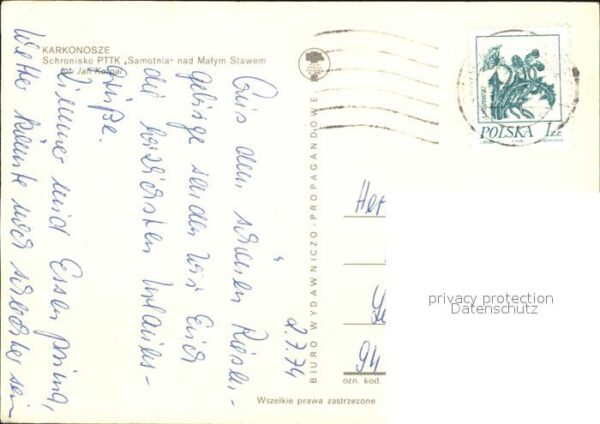 KARKONOSZE
Schronisko PTTK „Samotnia" nad Małym Stawem
fot. Jan Korpal
POLSKA 1 ZŁ
2.7.74
Aus dem schönen Riesen-
gebirge senden wir Euch
die herzlichsten Urlaubs-
grüße.
Zimmer und Essen prima,
Wetter könnte noch schöner sein
BIURO WYDAWNICZO-PROPAGANDOWE
Her
94
ozn. kod.
privacy protection
Datenschutz
Wszelkie prawa zastrzeżone